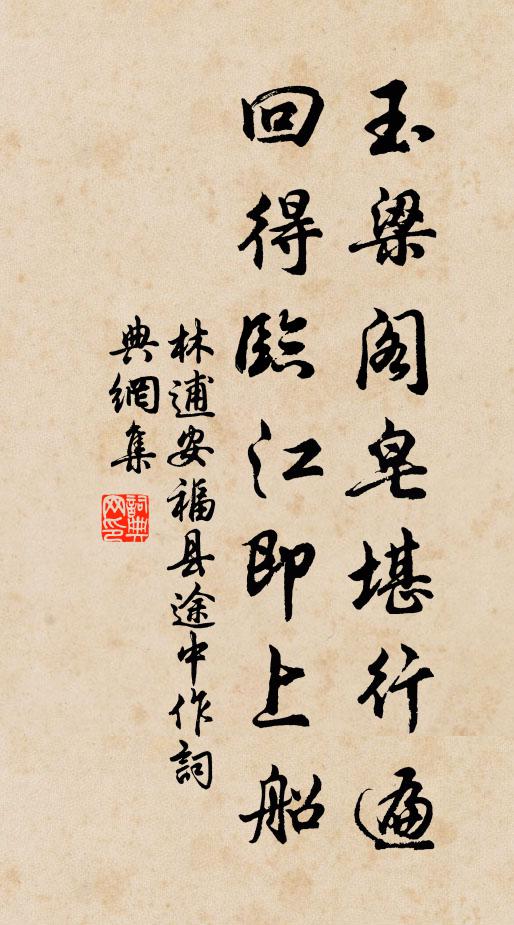 玉梁阁皂堪行遍
回得臨江即上船
林逋安福县途中作詞
典網集
詞典
网印